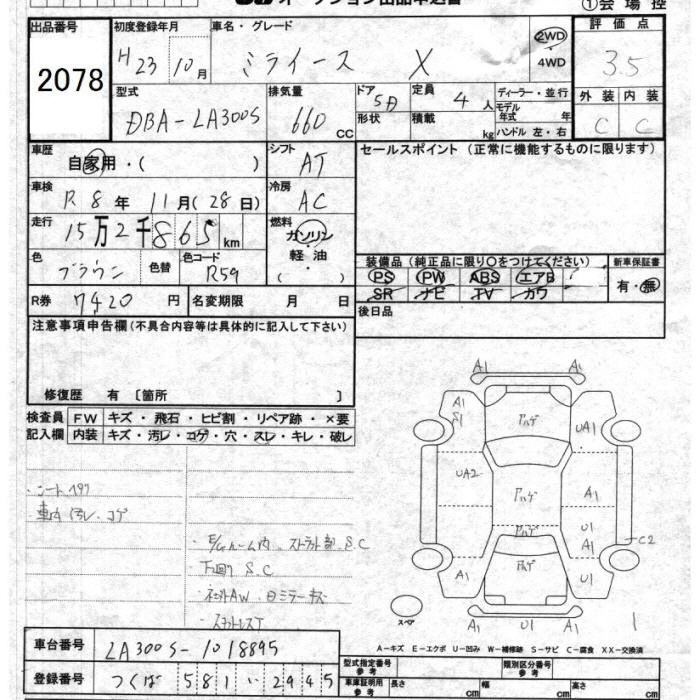 ①会場控
出品番号
2078
初度登録年月
H23 10月
車名・グレード
ミライース X
2WD
4WD
評価点
3.5
型式
DBA-LA300S
排気量
660 CC
ドア
5D
形状
定員
4人
積載
kg
ディーラー・並行
モデル年式 年
ハンドル 左・右
外装 内装
C C
車歴
自家用・( )
シフト
AT
セールスポイント (正常に機能するものに限ります)
車検
R 8年 11月(28日)
冷房
AC
走行
15万2千865km
燃料
ガソリン
・
軽油
( )
色
ブラウン
色替
色コード
R59
装備品(純正品に限り○をつけてください)
PS PW ABS エアB
SR ナビ TV カワ
新車保証書
有・無
R券 7420円
名変期限 月 日
後日品
注意事項申告欄(不具合内容等は具体的に記入して下さい)
修復歴 有〔箇所 〕
検査員 FW キズ・飛石・ヒビ割・リペア跡・×要
記入欄 内装 キズ・汚レ・コゲ・穴・スレ・キレ・破レ
・シートヘタリ
・車内汚レ、コゲ
・E/Gルーム内、ストラット部 S.C
・下回り S.C
A1 A1
A1
S1
アハゲ
UA1
UA2
アハゲ
A1
アハゲ
U1
A1
C2
A1
アハゲ
U1
スペア
A1 U1 A1
A-キズ E-エクボ U-凹み W-補修跡 S-サビ C-腐食 XX-交換済
車台番号 LA300S-1018895
登録番号 つくば 581 い 2945
型式指定番号 参考
類別区分番号 参考
車庫証明用 参考 長さ cm 幅 cm 高さ cm